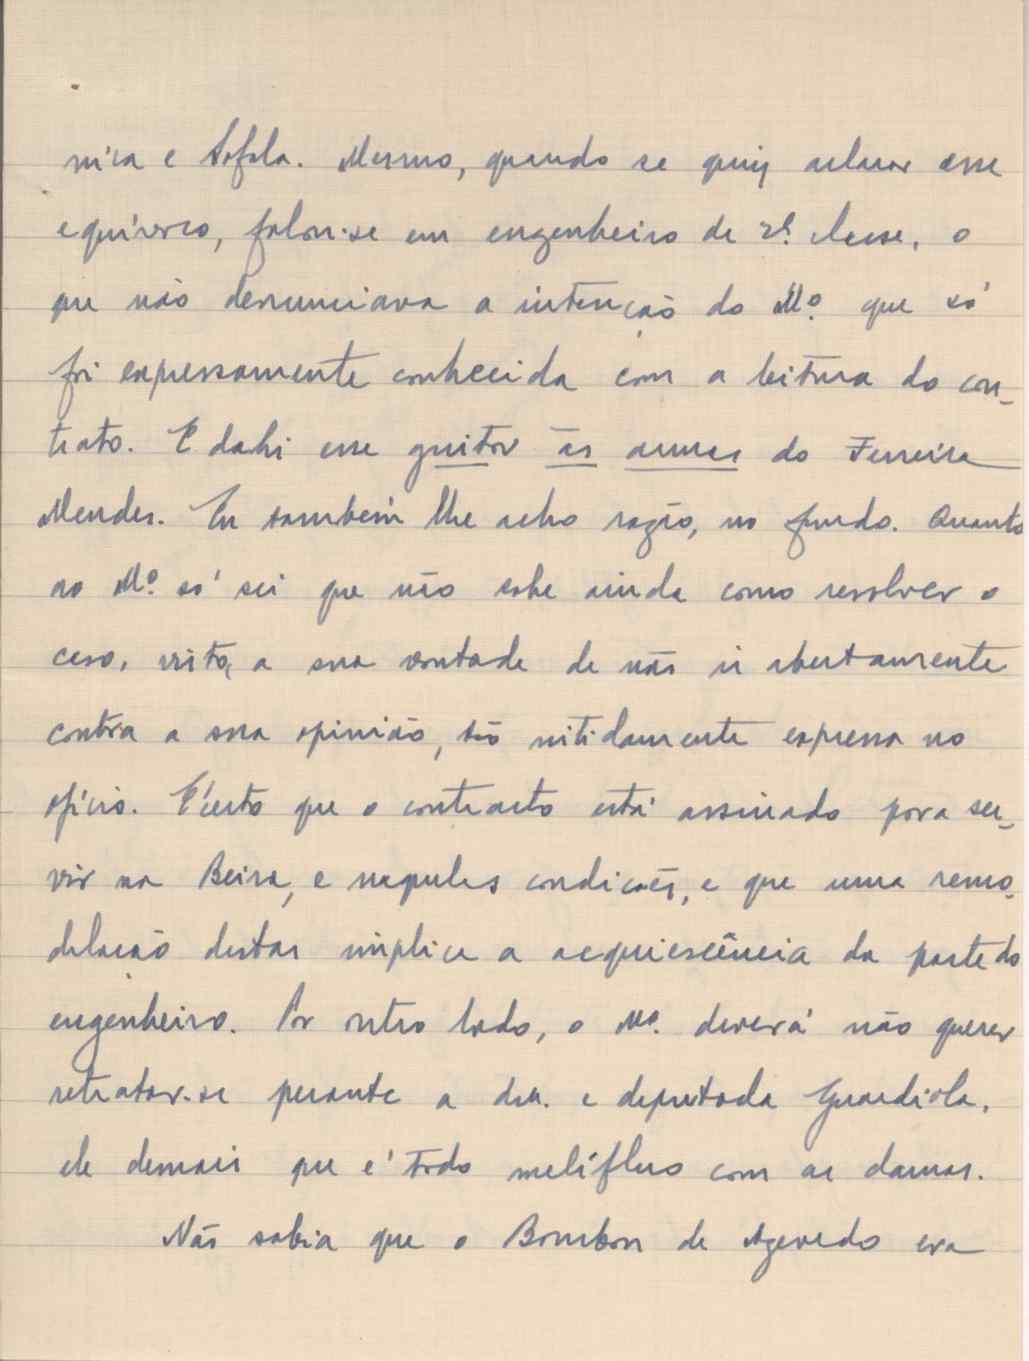 nica e Sofala. Mesmo, quando se quiz aclarar esse
equívoco, falou-se em engenheiro de 2ª. classe, o
que não denunciava a intenção do Mº. que só
foi expressamente conhecida com a leitura do con-
trato. E dahi esse gritar às armas do Ferreira
Mendes. Eu também lhe acho razão, no fundo. Quanto
ao Mº. só sei que não sabe ainda como resolver o
caso, vista a sua vontade de não ir abertamente
contra a sua opinião, tão nitidamente expressa no
ofício. É certo que o contracto está assinado para ser-
vir na Beira, e naquelas condições, e que uma remo-
delação destas implica a acquiescência da parte do
engenheiro. Por outro lado, o Mº. deverá não querer
retratar-se perante a dra. e deputada Guardiola,
ele demais que é todo melífluo com as damas.
Não sabia que o Bombon de Azevedo era